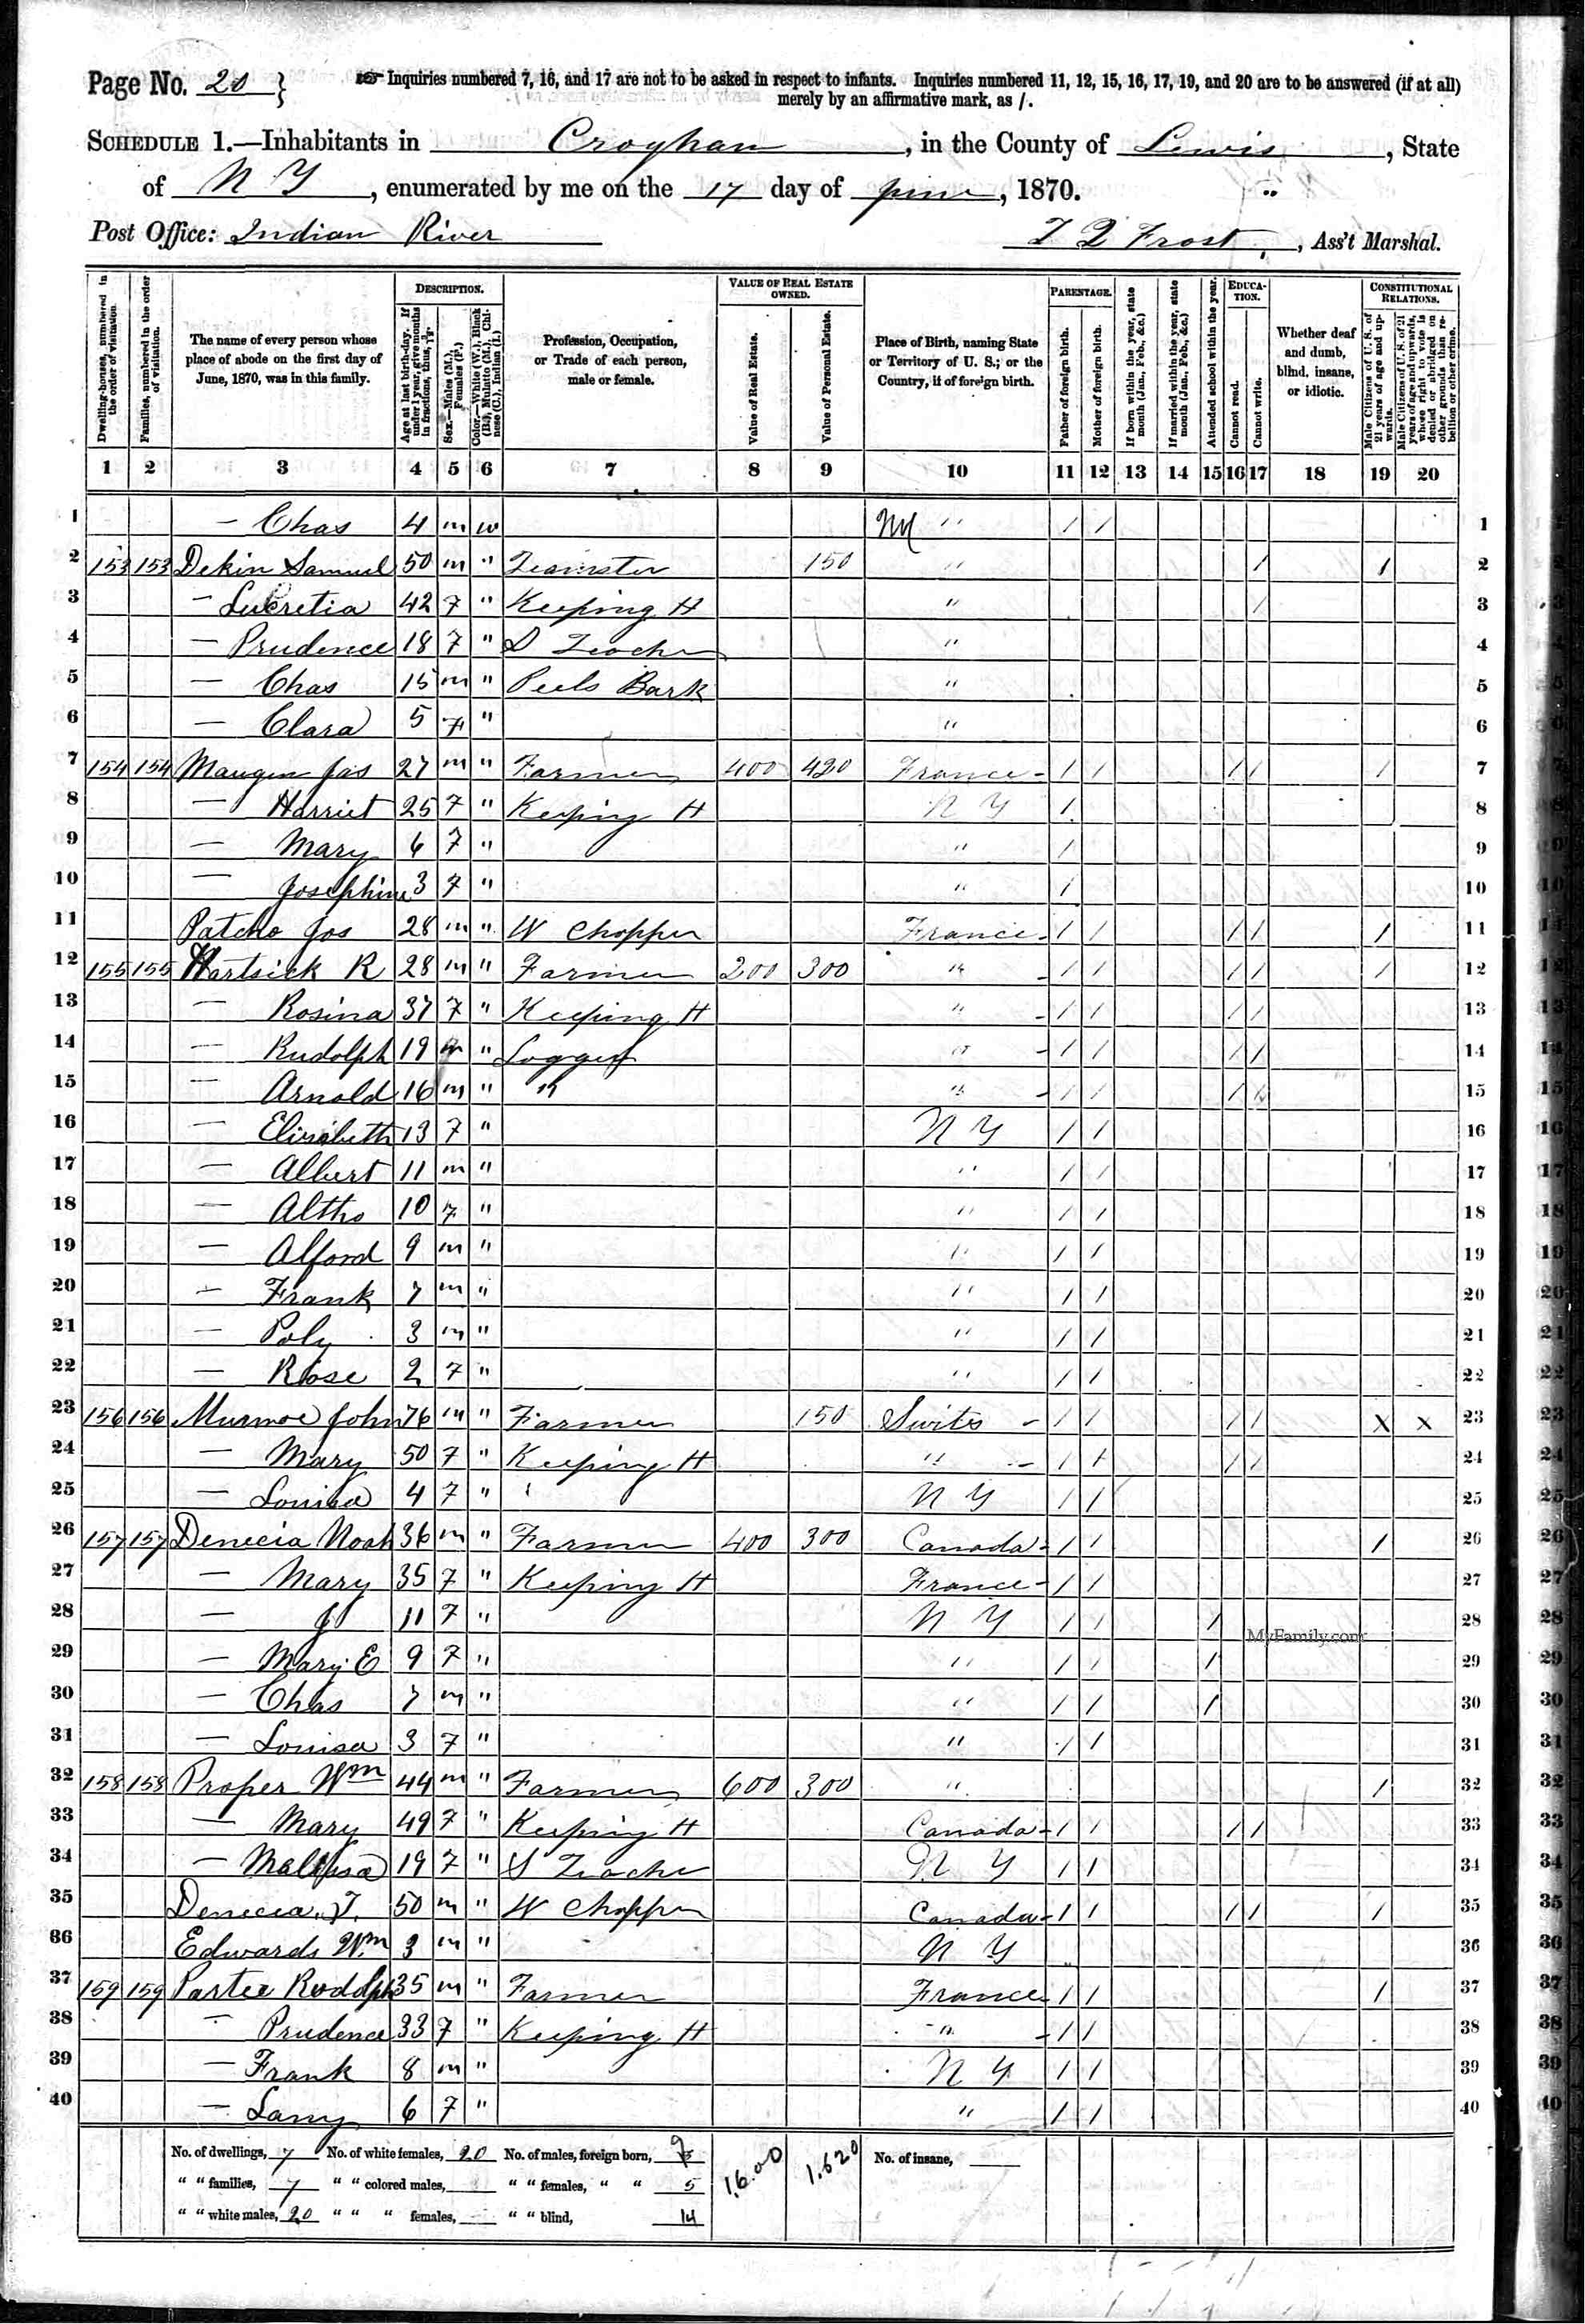 Page No. 20 } Inquiries numbered 7, 16, and 17 are not to be asked in respect to infants. Inquiries numbered 11, 12, 15, 16, 17, 19, and 20 are to be answered (if at all)
merely by an affirmative mark, as /.
SCHEDULE 1.—Inhabitants in Croghan, in the County of Lewis, State
of N Y, enumerated by me on the 17 day of june, 1870.
Post Office: Indian River Frost, Ass't Marshal.
Dwelling-houses, numbered in the order of visitation.
Families, numbered in the order of visitation.
The name of every person whose place of abode on the first day of June, 1870, was in this family.
DESCRIPTION.
Age at last birth-day. If under 1 year, give months in fractions, thus,
Sex.—Males (M.), Females (F.)
Color.—White (W.), Black (B.), Mulatto (M.), Chinese (C.), Indian (I.)
Profession, Occupation, or Trade of each person, male or female.
VALUE OF REAL ESTATE OWNED.
Value of Real Estate.
Value of Personal Estate.
Place of Birth, naming State or Territory of U. S.; or the Country, if of foreign birth.
PARENTAGE.
Father of foreign birth.
Mother of foreign birth.
If born within the year, state month (Jan., Feb., &c.)
If married within the year, state month (Jan., Feb., &c.)
Attended school within the year.
EDUCATION.
Cannot read.
Cannot write.
Whether deaf and dumb, blind, insane, or idiotic.
CONSTITUTIONAL RELATIONS.
Male Citizens of U. S. of 21 years of age and upwards.
Male Citizens of U. S. of 21 years of age and upwards, whose right to vote is denied or abridged on other grounds than rebellion or other crime.
1 2 3 4 5 6 7 8 9 10 11 12 13 14 15 16 17 18 19 20
1 — Chas 4 m w " / / 1
2 153 153 Dekin Samuel 50 m " Teamster 150 " / / 2
3 — Lucretia 42 F " Keeping H " / 3
4 — Prudence 18 F " S Teacher " 4
5 — Chas 15 m " Peels Bark " 5
6 — Clara 5 F " " 6
7 154 154 Maugen Jas 27 m " Farmer 400 420 France - / / / / / 7
8 — Harriet 25 F " Keeping H N Y / 8
9 — Mary 6 F " " / 9
10 — Josephine 3 F " " / 10
11 Patcho Jos 28 m " W Chopper France - / / / / / 11
12 155 155 Hartsick R 28 m " Farmer 200 300 " - / / / / / 12
13 — Rosina 37 F " Keeping H " - / / / / 13
14 — Rudolph 19 m " Logger " - / / / / 14
15 — Arnold 16 m " " " - / / / / 15
16 — Elisabeth 13 F " N Y / / 16
17 — Albert 11 m " " / / 17
18 — Altho 10 F " " / / 18
19 — Alford 9 m " " / / 19
20 — Frank 7 m " " / / 20
21 — Poly 3 m " " / / 21
22 — Rose 2 F " " / / 22
23 156 156 Murmoe John 76 m " Farmer 150 Swits - / / / / X X 23
24 — Mary 50 F " Keeping H " - / / / / 24
25 — Louisa 4 F " N Y / / 25
26 157 157 Denecia Noah 36 m " Farmer 400 300 Canada - / / / 26
27 — Mary 35 F " Keeping H France - / / 27
28 — 11 F " N Y / / / 28
MyFamily.com
29 — Mary E 9 F " " / / / 29
30 — Chas 7 m " " / / / 30
31 — Louisa 3 F " " / / 31
32 158 158 Proper Wm 44 m " Farmer 600 300 " / 32
33 — Mary 49 F " Keeping H Canada - / / / / 33
34 — Malissa 19 F " S Teacher N Y / / 34
35 Denecia J. 50 m " W Chopper Canada - / / / / / 35
36 Edwards Wm 3 m " N Y 36
37 159 159 Partee Rudolph 35 m " Farmer France - / / / 37
38 — Prudence 33 F " Keeping H " - / / 38
39 — Frank 8 m " N Y / / 39
40 — Lany 6 F " " / / 40
No. of dwellings, 7 No. of white females, 20 No. of males, foreign born, 9 1,600 1,620 No. of insane,
" " families, 7 " " colored males, " " females, " " 5
" " white males, 20 " " " females, " " blind, 14